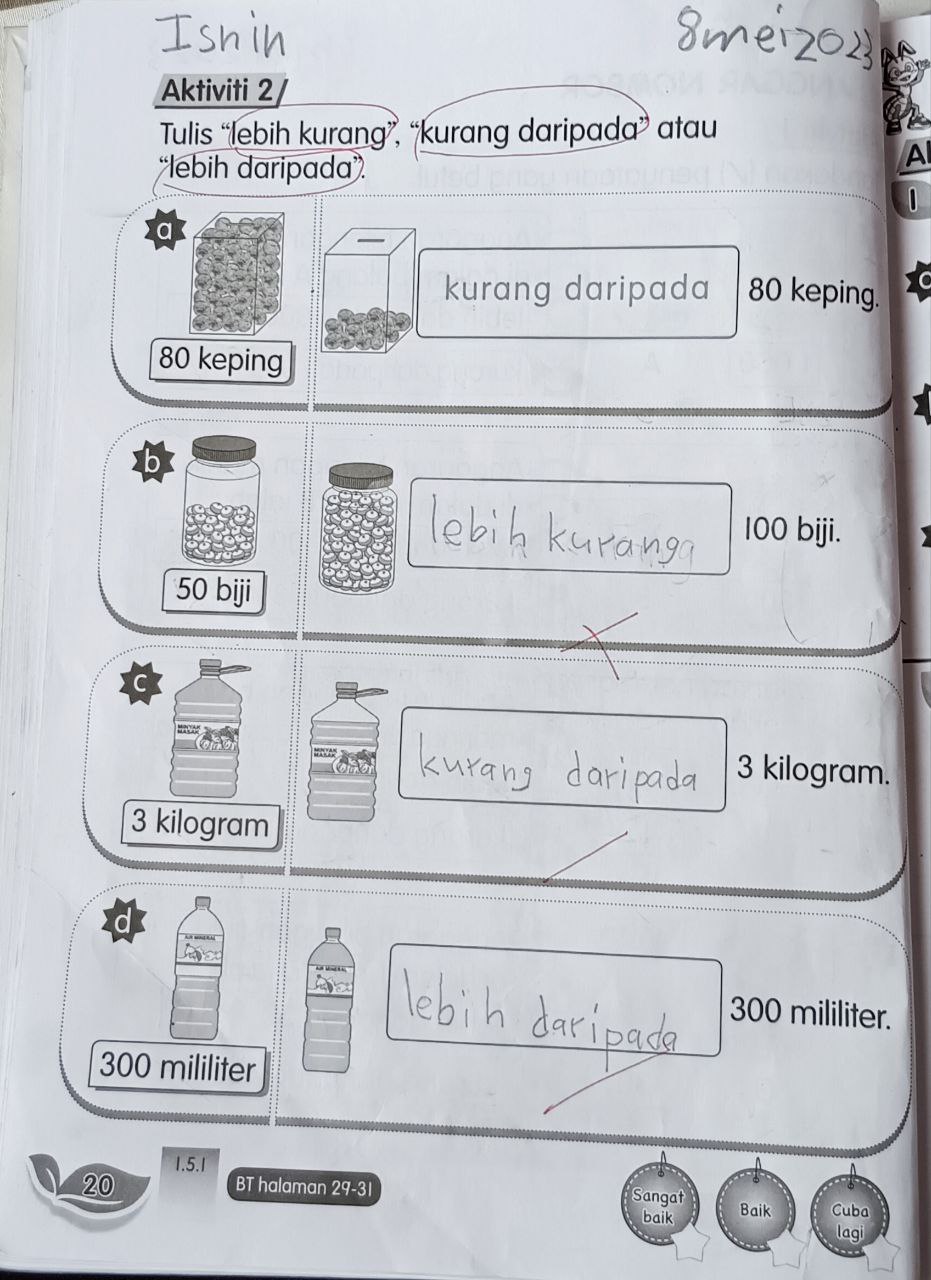 Isnin 8mei2023
Aktiviti 2
Tulis “lebih kurang”, “kurang daripada” atau
“lebih daripada”.
a
kurang daripada 80 keping.
80 keping
b
lebih kurangg 100 biji.
50 biji
c
MINYAK MASAK
MINYAK MASAK
kurang daripada 3 kilogram.
3 kilogram
d
AIR MINERAL
AIR MINERAL
lebih daripada 300 mililiter.
300 mililiter
20
1.5.1
BT halaman 29-31
Sangat
baik
Baik
Cuba
lagi